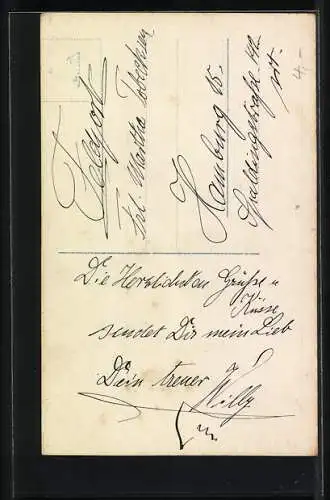 Feldpost
Frl. Martha
Hamburg 15.
Spaldingstraße 142
ptr.
4,-
Die Herzlichsten Grüße u
Küsse
sendet Dir mein Lieb
Dein treuer
Willy.